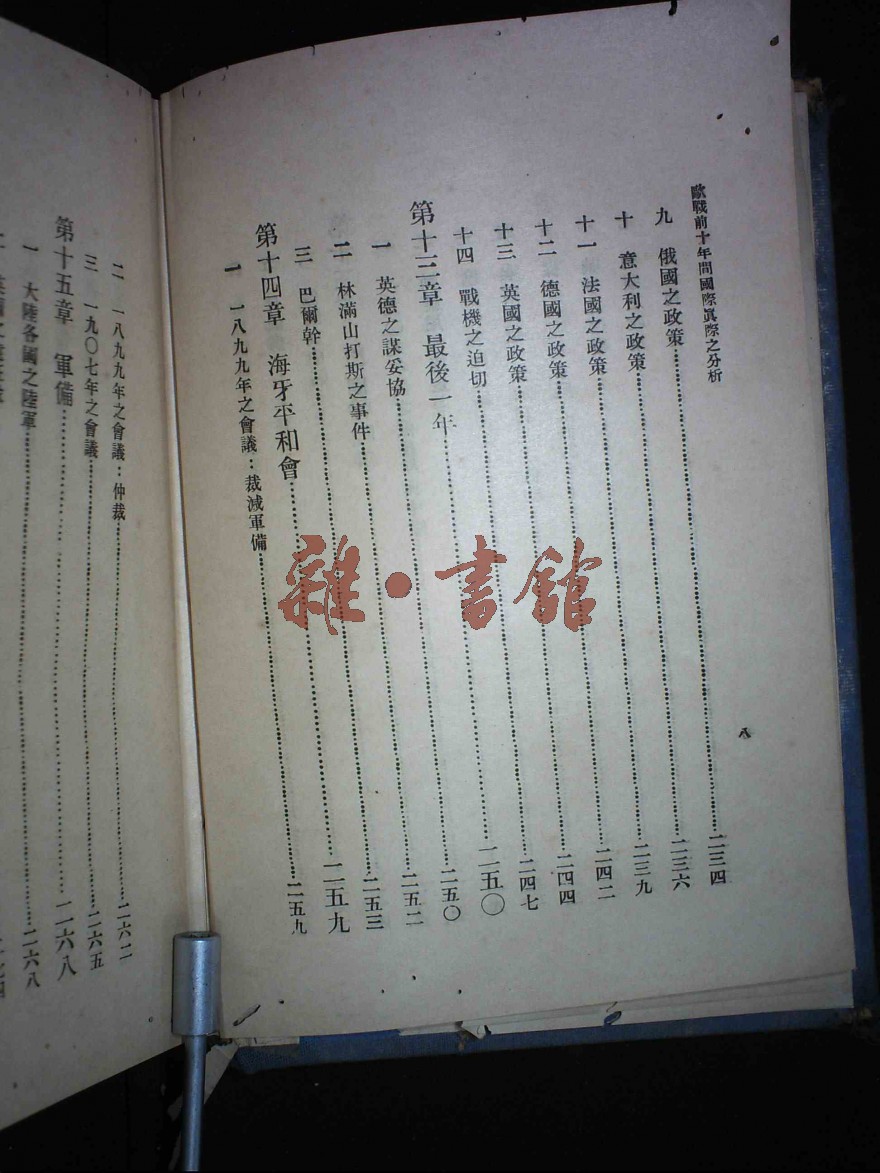 歐戰前十年間國際眞際之分析
八
九 俄國之政策……二三四
十 意大利之政策……二三六
十一 法國之政策……二三九
十二 德國之政策……二四二
十三 英國之政策……二四四
十四 戰機之迫切……二四七
第十三章 最後一年……二五〇
一 英德之謀妥協……二五〇
二 林滿山打斯之事件……二五二
三 巴爾幹……二五三
第十四章 海牙平和會……二五九
一 一八九九年之會議：裁減軍備……二五九
二 一八九九年之會議：仲裁……二六二
三 一九〇七年之會議……二六五
第十五章 軍備……二六八
一 大陸各國之陸軍……二六八
雜·書館